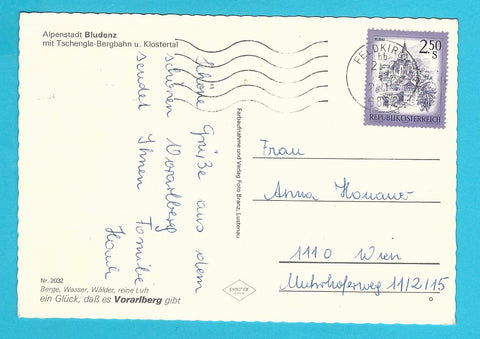 Alpenstadt Bludenz
mit Tschengla-Bergbahn u. Klostertal
Schöne Grüße aus dem
schönen Vorarlberg
sendet Ihnen Familie
Nr. 2032
Berge, Wasser, Wälder, reine Luft
ein Glück, daß es Vorarlberg gibt
Farbaufnahme und Verlag Foto Branz, Lustenau
FELDKIRCH
2.50
S
REPUBLIK ÖSTERREICH
Frau
Anna
1110 Wien
11/2/15